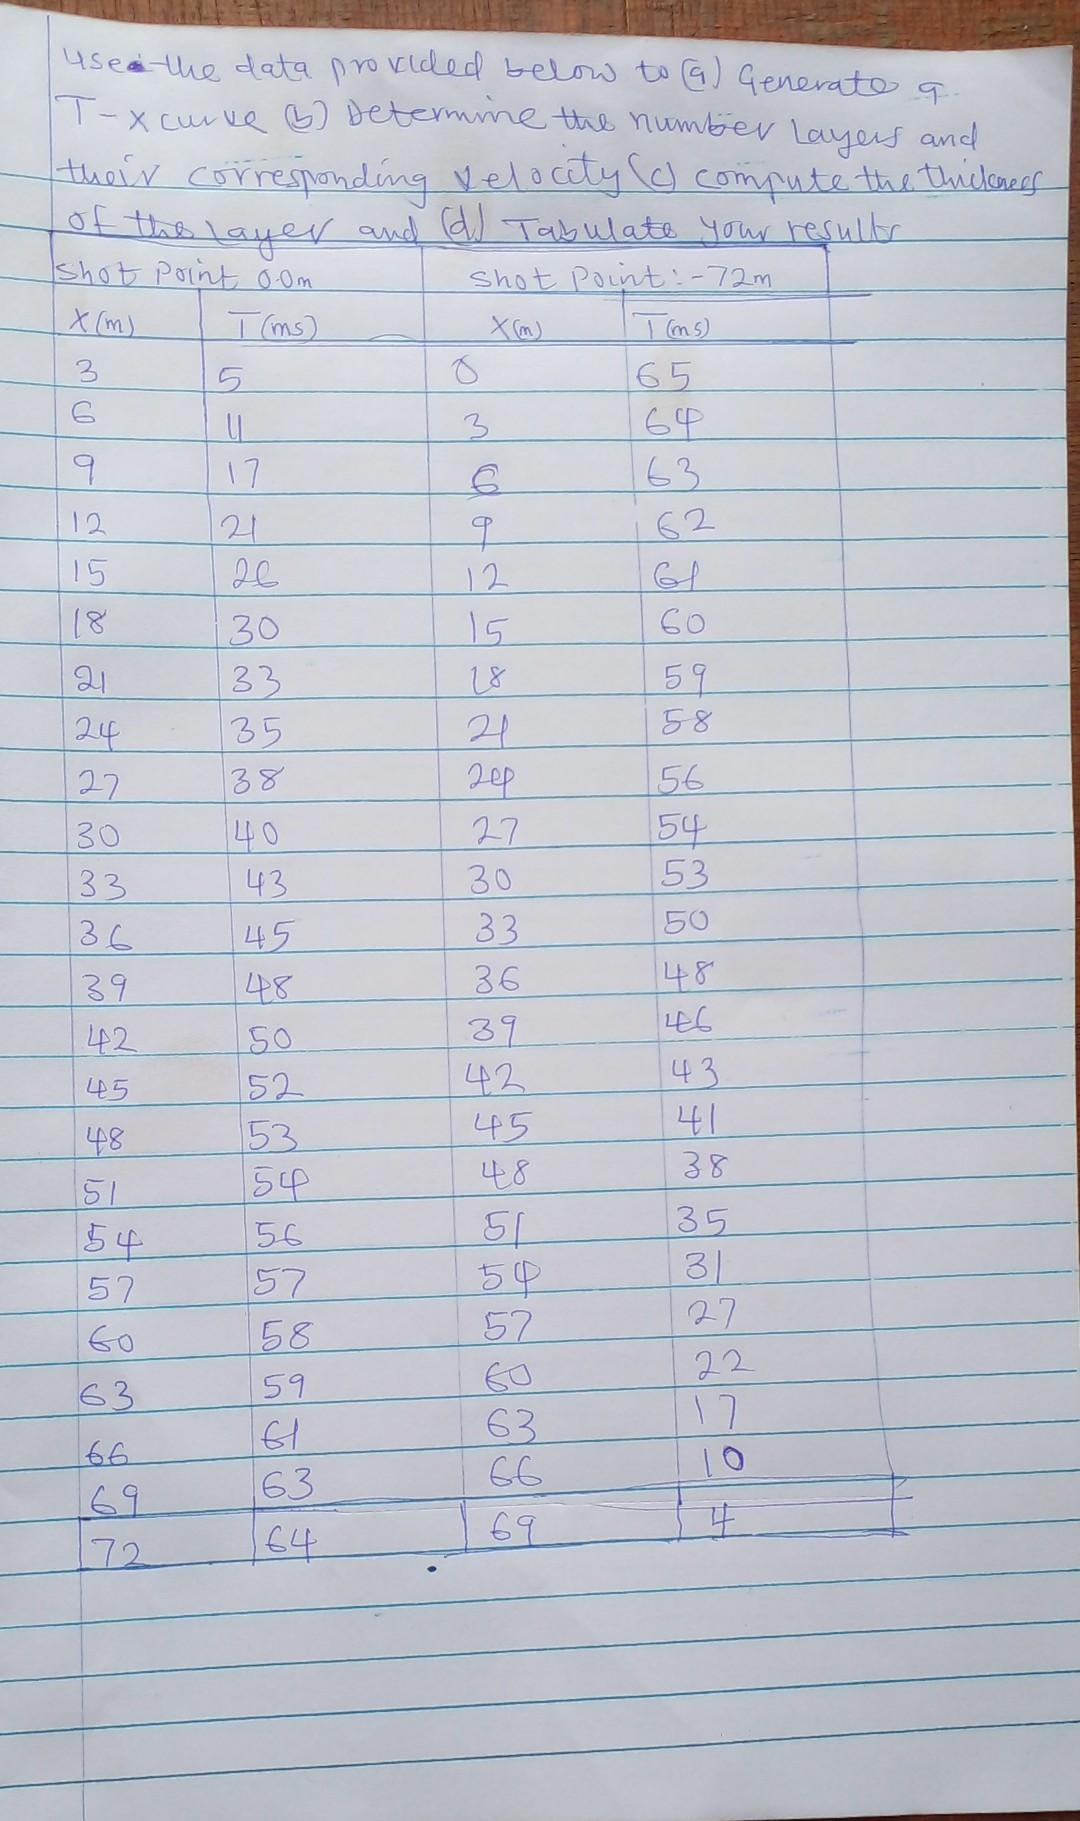 Use the data provided below to (a) Generate a
T-x curve (b) Determine the number Layers and
their corresponding velocity (c) compute the thickness
of the Layer and (d) Tabulate your results
Shot Point 0.0m Shot Point:-72m
X(m) T(ms) X(m) T(ms)
3 5 0 65
6 11 3 64
9 17 6 63
12 21 9 62
15 26 12 61
18 30 15 60
21 33 18 59
24 35 21 58
27 38 24 56
30 40 27 54
33 43 30 53
36 45 33 50
39 48 36 48
42 50 39 46
45 52 42 43
48 53 45 41
51 54 48 38
54 56 51 35
57 57 54 31
60 58 57 27
63 59 60 22
66 61 63 17
69 63 66 10
72 64 69 4